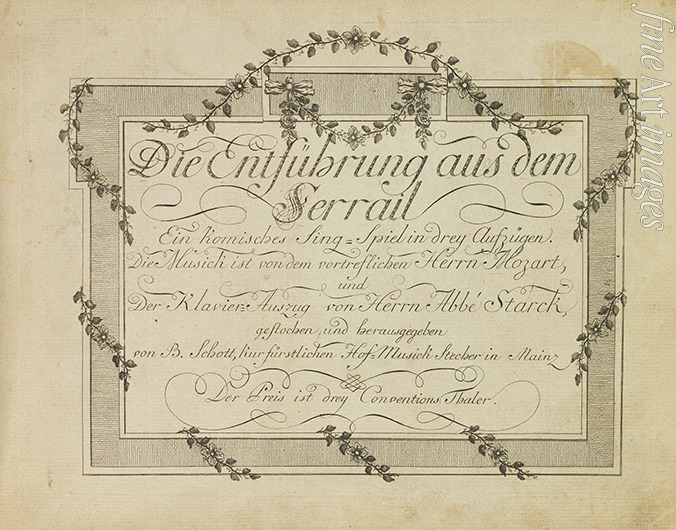 Die Entführung aus dem
Serrail
Ein komisches Sing=Spiel in drey Aufzügen.
Die Musick ist von dem vortreflichen Herrn Mozart,
und
Der Klavier=Auszug von Herrn Abbé Starck,
gestochen, und herausgegeben
von B. Schott, kurfürstlichen Hof=Musick Stecher in Mainz
Der Preis ist drey Conventions Thaler.
fine Art images